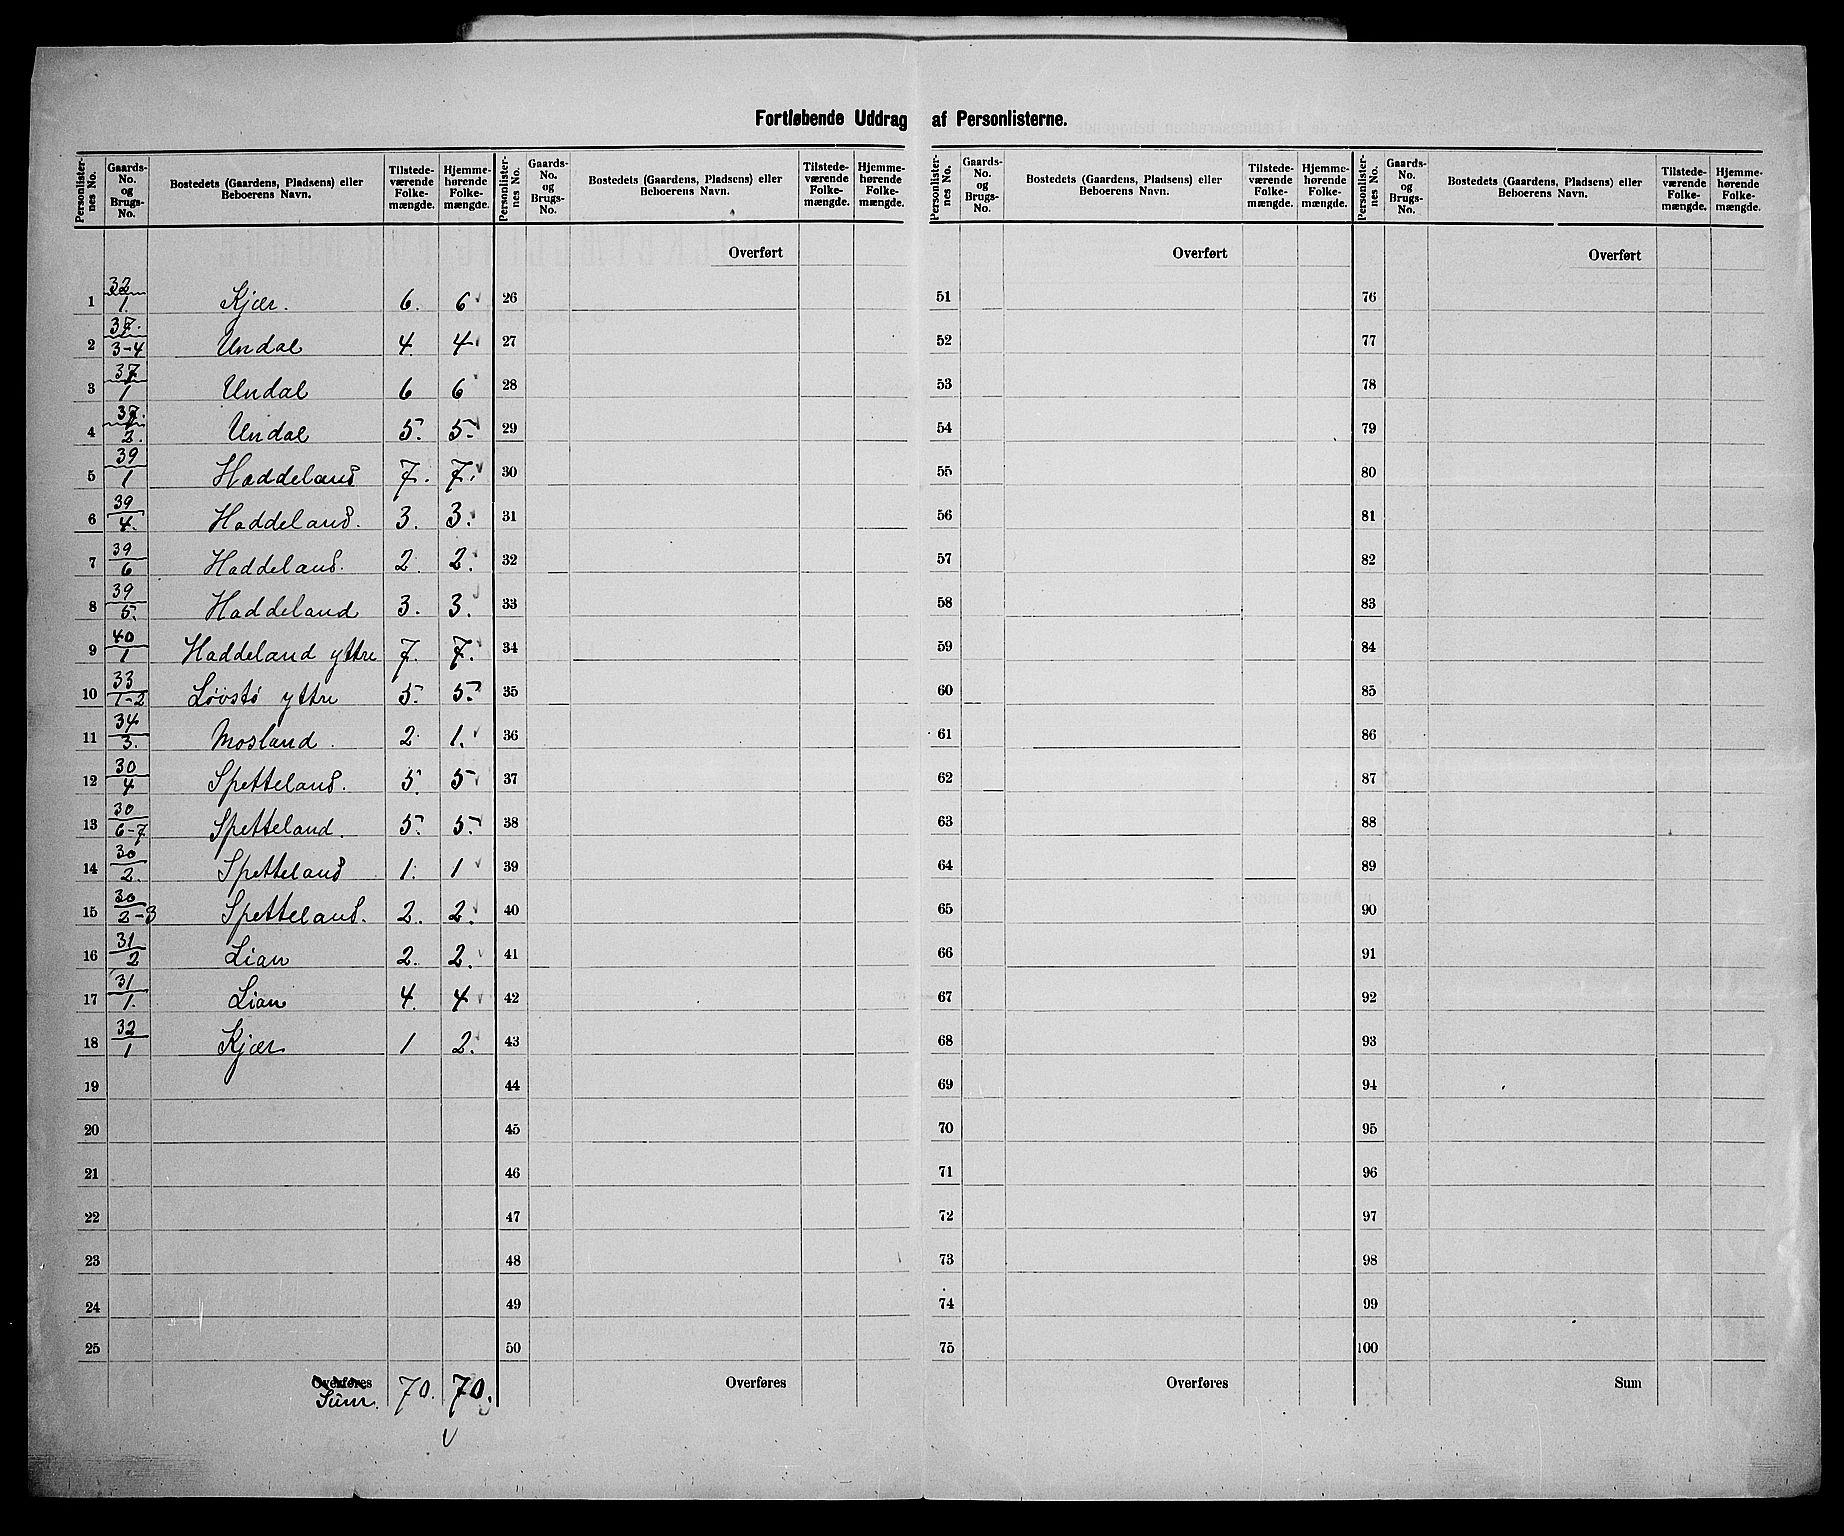 Fortløbende Uddrag af Personlisterne.
Personlister-nes No. | Gaards-No. og Brugs-No. | Bostedets (Gaardens, Pladsens) eller Beboerens Navn. | Tilstede-værende Folke-mængde. | Hjemme-hørende Folke-mængde. | Personlister-nes No. | Gaards-No. og Brugs-No. | Bostedets (Gaardens, Pladsens) eller Beboerens Navn. | Tilstede-værende Folke-mængde. | Hjemme-hørende Folke-mængde. | Personlister-nes No. | Gaards-No. og Brugs-No. | Bostedets (Gaardens, Pladsens) eller Beboerens Navn. | Tilstede-værende Folke-mængde. | Hjemme-hørende Folke-mængde. | Personlister-nes No. | Gaards-No. og Brugs-No. | Bostedets (Gaardens, Pladsens) eller Beboerens Navn. | Tilstede-værende Folke-mængde. | Hjemme-hørende Folke-mængde.
Overført Overført Overført
1 32/1. Kjær. 6. 6 26 51 76
2 37./3-4 Undal 4. 4 27 52 77
3 37/1 Undal 6 6 28 53 78
4 37./2. Undal 5. 5. 29 54 79
5 39/1 Haddeland 7. 7. 30 55 80
6 39/4. Haddeland. 3. 3. 31 56 81
7 39/6 Haddeland. 2. 2. 32 57 82
8 39/5. Haddeland 3. 3. 33 58 83
9 40/1 Haddeland yttre 7. 7. 34 59 84
10 33/1-2 Løvstø yttre 5. 5. 35 60 85
11 34/3. Mosland. 2. 1. 36 61 86
12 30/4 Spetteland. 5. 5 37 62 87
13 30/6-7 Spetteland. 5. 5. 38 63 88
14 30/2. Spetteland 1. 1 39 64 89
15 30/2-3 Spetteland. 2. 2. 40 65 90
16 31/2 Lian 2. 2. 41 66 91
17 31/1. Lian 4. 4 42 67 92
18 32/1 Kjær 1 2. 43 68 93
19 44 69 94
20 45 70 95
21 46 71 96
22 47 72 97
23 48 73 98
24 49 74 99
25 50 75 100
Overføres 70. 70. Overføres Overføres Sum
Sum.